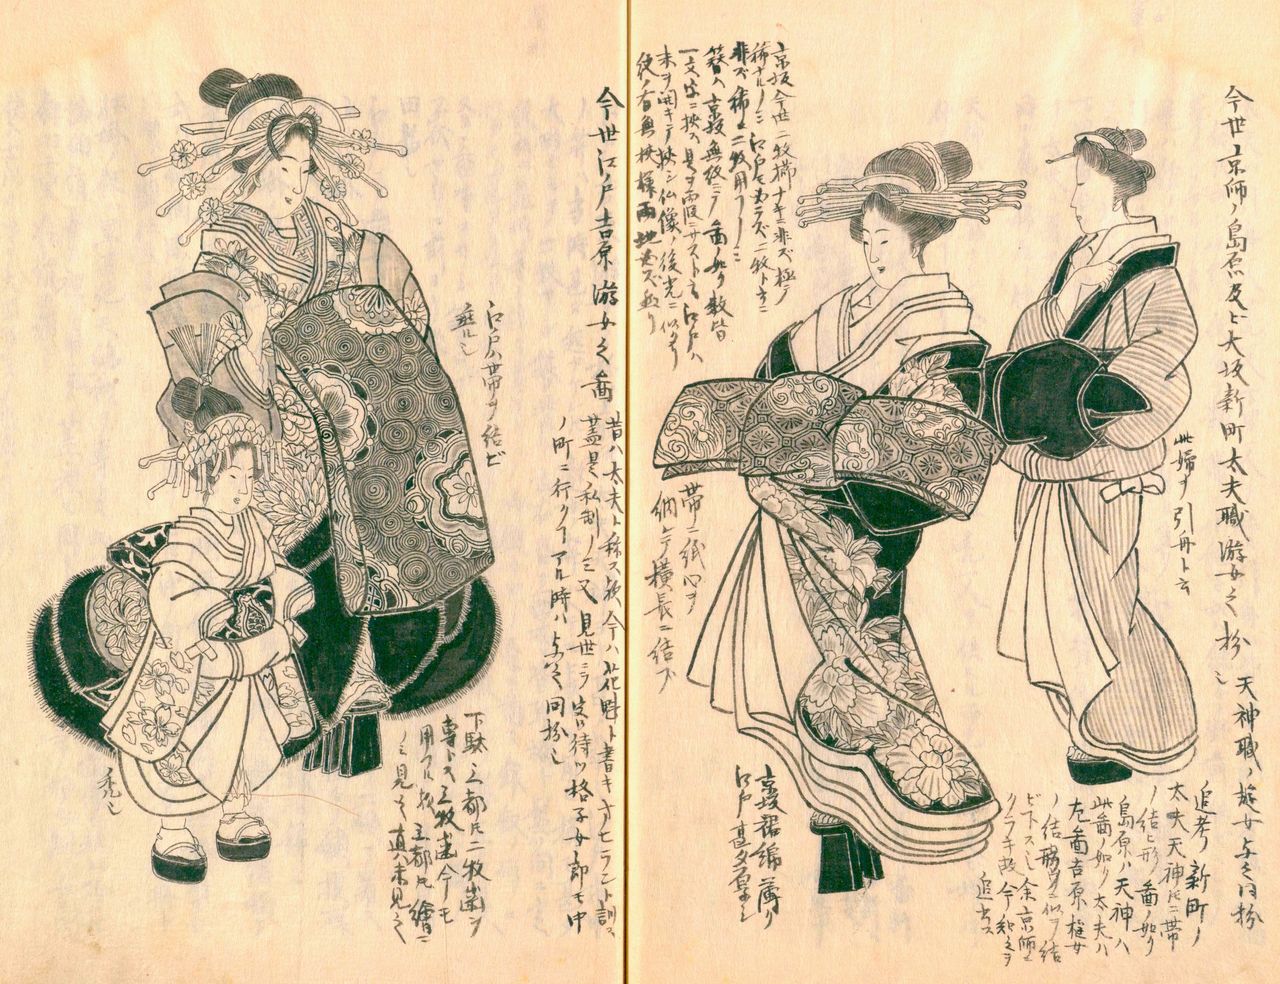 今世京師ノ島原及ビ大坂新町太夫職游女之扮也 天神職ノ遊女与之同扮
此婦ヲ引舟ト云
追考 新町ノ
太夫天神トモニ帯
ノ結ヒ形圖ノ如ク
島原ハ天神ハ
此圖ノ如ク太夫ハ
左圖吉原遊女
ノ結 ニ似テ結
ビ下ス也 余京師ニ
クラキ故今知之ヲ
追書ス
京坂今世二枚櫛ナキニ非ズ極テ
稀ナルノミ 江戸モカナラズ二枚ト云ニ
非ズ稀ニ二枚用フノミ
簪ハ京坂無紋ニテ圖ノ如ク数皆
一文字ニ挟之是ヲ両段ニサスト云江戸ハ
末ヲ開キテ挟之仏像ノ後光ニ似タリ
紋ノ有無挟様両地 然リ
帯ニ紙心ヲ
納レテ横長ニ結ブ
京坂裾綿薄ク
江戸甚ダ厚シ
今世江戸吉原游女之圖
昔ハ太夫ト称ス 今ハ花魁ト書キオヒラント訓ス
蓋是私制ノミ 又見世ニテ客待ツ格子女郎モ中
ノ町ニ行クコアル時ハ与之同扮也
江戸ハ帯ヲ結ビ
垂ル也
下駄三都トモニ二枚歯ヲ
専トス三枚歯今モ
用フル歟三都トモ繪ニ
ノミ見テ直ハ未見之
禿也